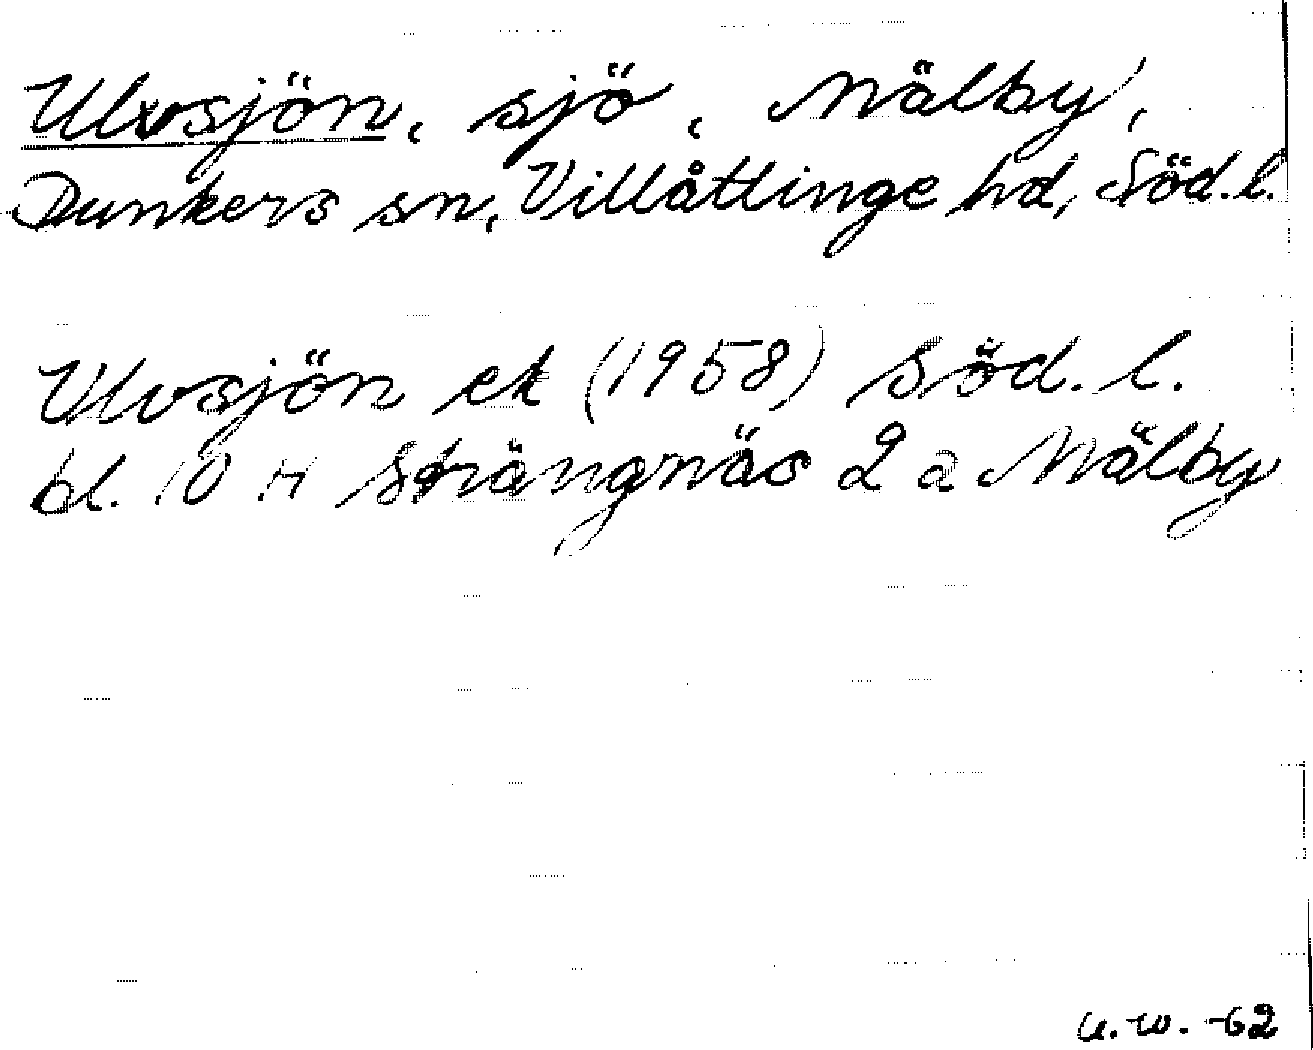 Ulvsjön, sjö, Mälby,
Dunkers sn, Villåttinge hd, Söd.l.
Ulvsjön ek (1958) Söd.l.
bl. 10 H Strängnäs 2 a Mälby
U.W. -62